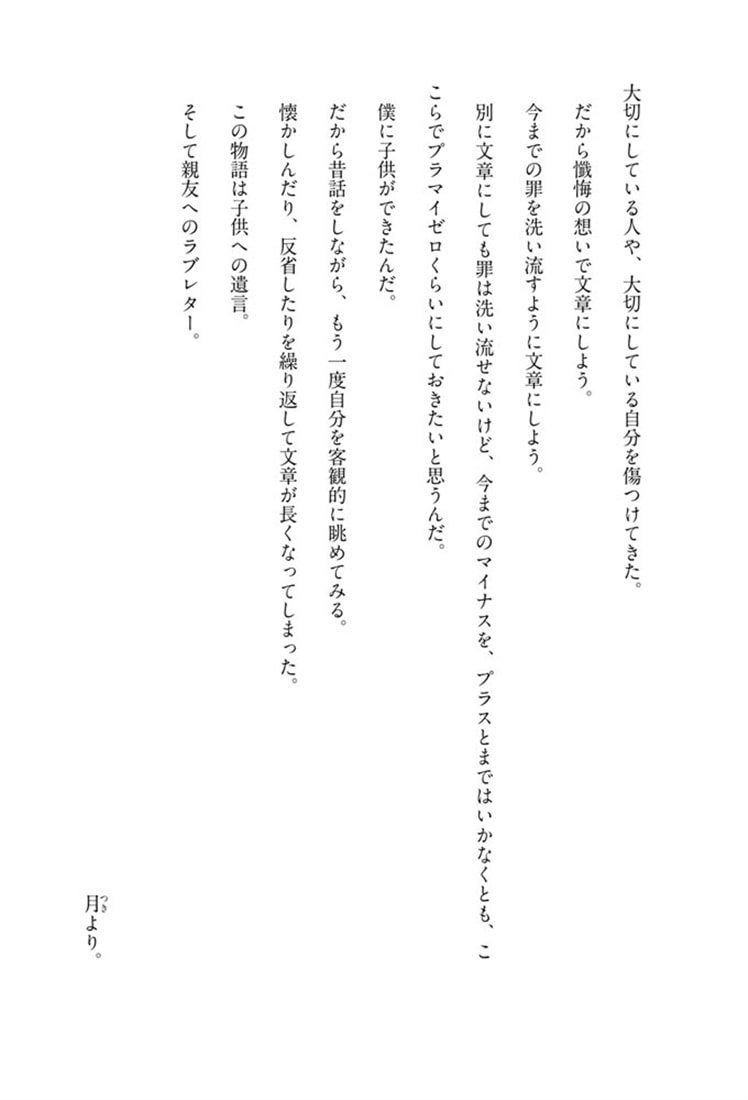 大切にしている人や、大切にしている自分を傷つけてきた。
だから懺悔の想いで文章にしよう。
今までの罪を洗い流すように文章にしよう。
別に文章にしても罪は洗い流せないけど、今までのマイナスを、プラスとまではいかなくとも、こ
こらでプラマイゼロくらいにしておきたいと思うんだ。
僕に子供ができたんだ。
だから昔話をしながら、もう一度自分を客観的に眺めてみる。
懐かしんだり、反省したりを繰り返して文章が長くなってしまった。
この物語は子供への遺言。
そして親友へのラブレター。
月より。
つき